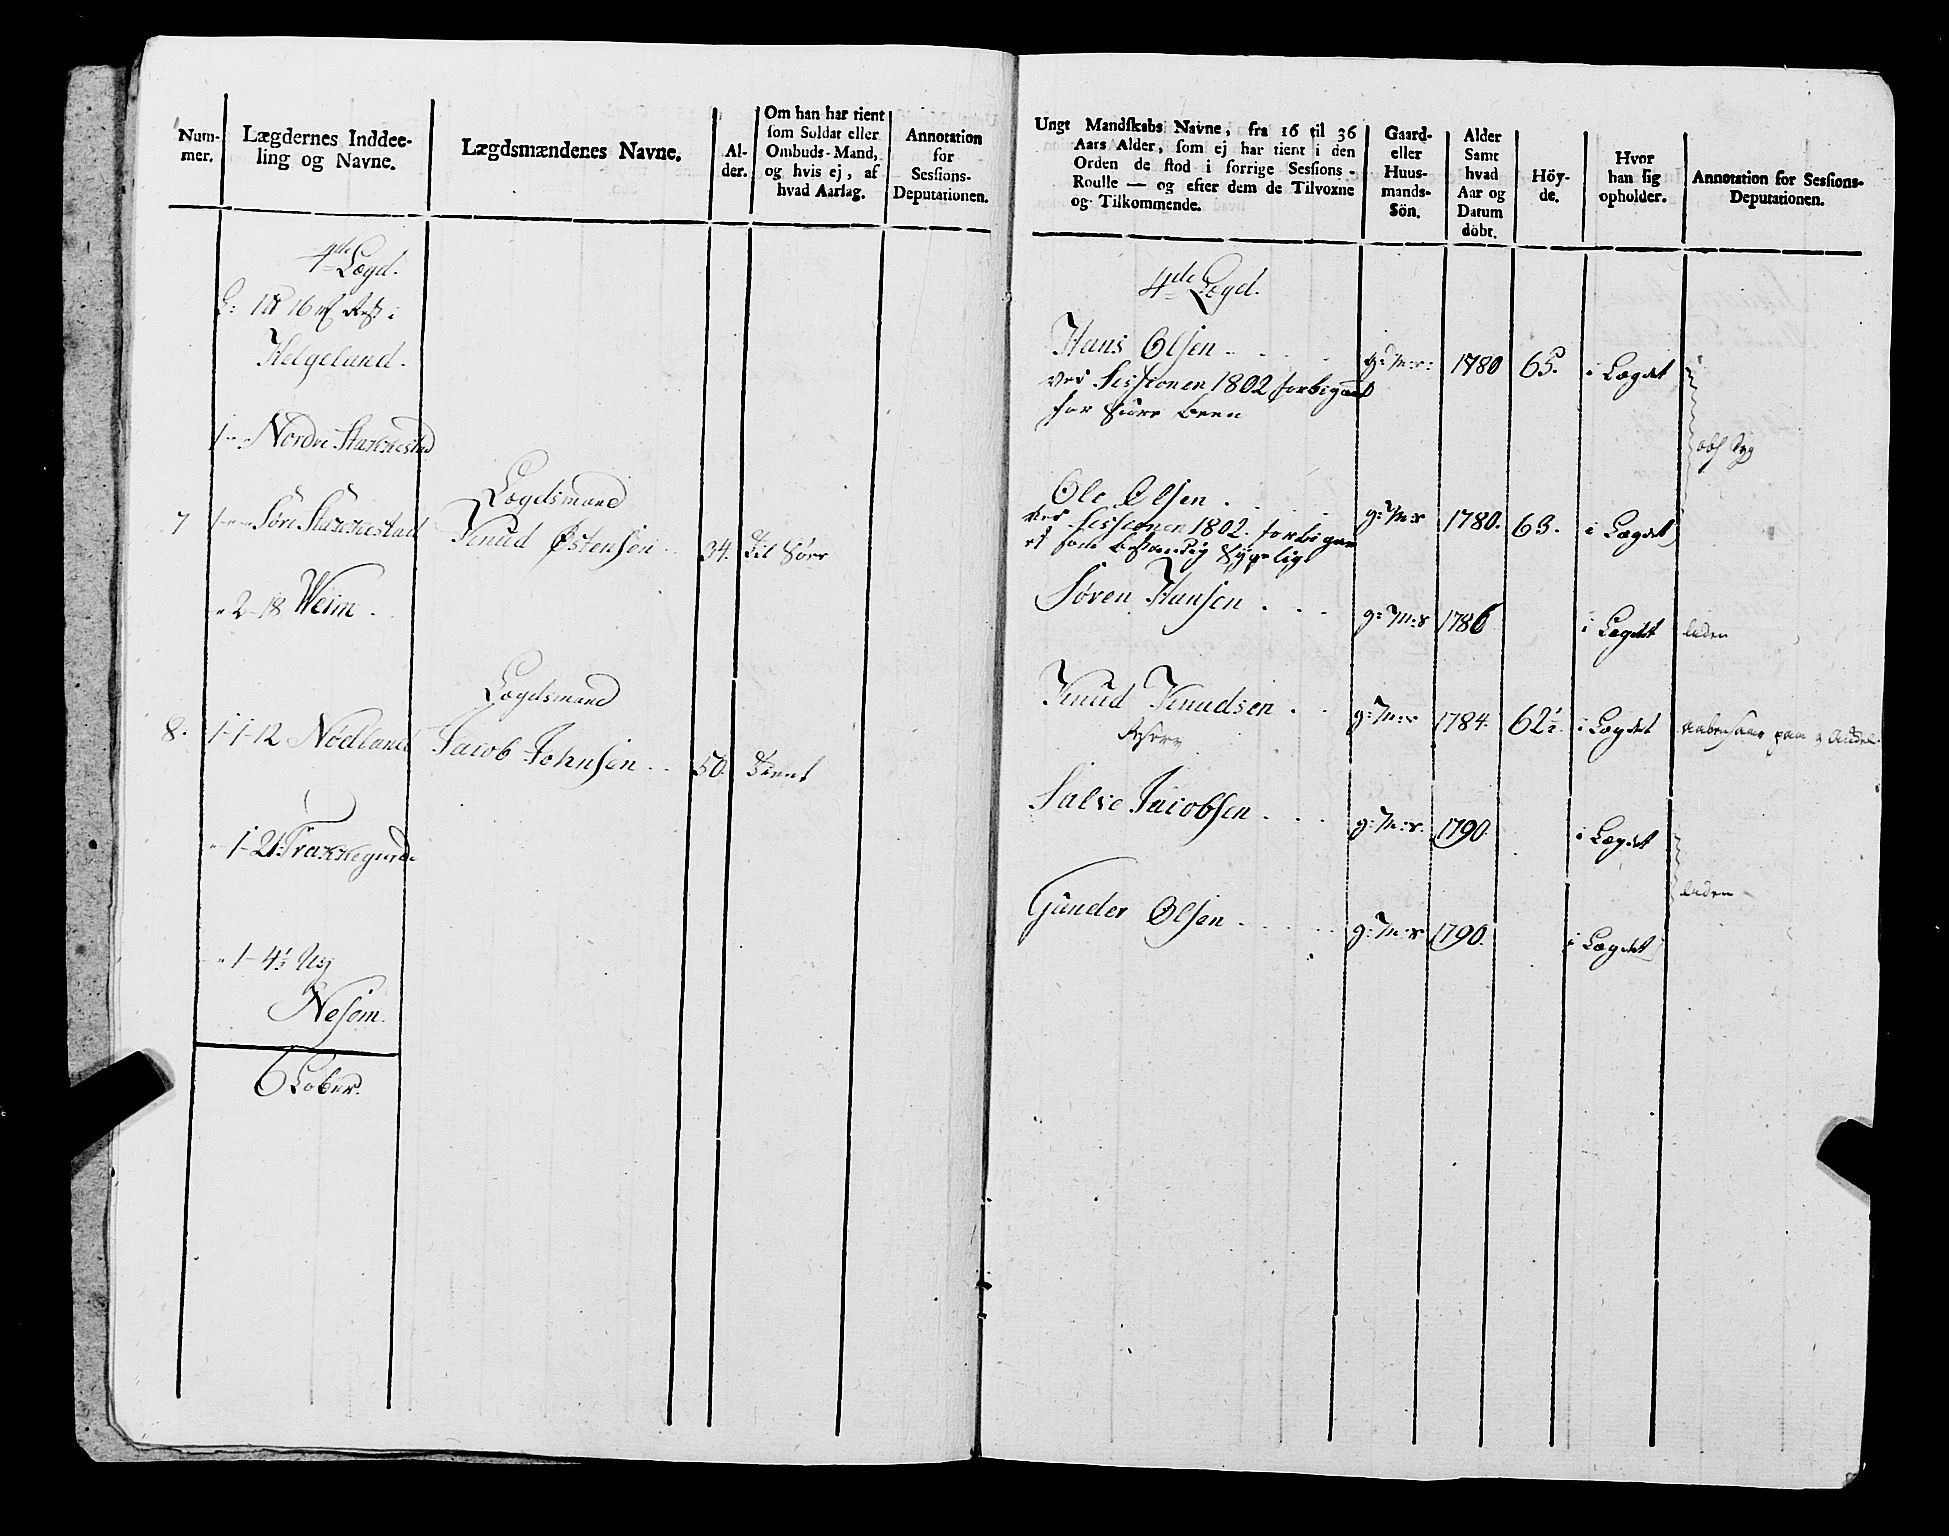 Num-
mer.
Lægdernes Inddee-
ling og Navne.
Lægdsmændenes Navne.
Al-
der.
Om han har tient
som Soldat eller
Ombuds-Mand,
og hvis ej, af
hvad Aarsag.
Annotation
for
Sessions-
Deputationen.
4de Lægd.
Helgeland.
1 " " Nordre Stakkestad
7
1 " " Søre Stakkestad
Lægdsmand
Knud Østensen
34.
" 2-18 Weim.
8.
1-1-12 Nødland
Lægdsmand
Jacob Johnsen
50.
tient
" 1-21
" 1-4½
Nesem.
6 Lober.
Ungt Mandskabs Navne, fra 16 til 36
Aars Alder, som ej har tient i den
Orden de stod i forrige Sessions-
Roulle — og efter dem de Tilvoxne
og Tilkommende.
Gaard-
eller
Huus-
mands-
Sön.
Alder
Samt
hvad
Aar og
Datum
döbt.
Höy-
de.
Hvor
han sig
opholder.
Annotation for Sessions-
Deputationen.
4de Lægd.
Hans Olsen
g: M: s:
1780
65.
i Lægdet
ved Sessionen 1802 forbigaaet
for been
Ole Olsen
g: M: s
1780.
63.
i Lægdet
ved Sessionen 1802. forbigaa
et som bestandig Sygelig
Søren Hansen
g: M: s
1786
i Lægdet
liden
Knud Knudsen
g: M: s
1784.
62½
i Lægdet
Salve Jacobsen
g: M: s.
1790.
i Lægdet
liden
Gunder Olsen
g: M: s
1790.
i Lægdet